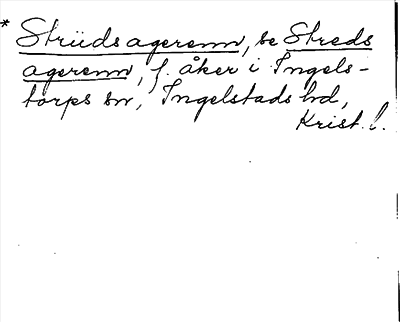 * Strüdsagerenn, se Streds
agerenn, f. åker i Ingels-
torps sn, Ingelstads hd,
Krist. l.